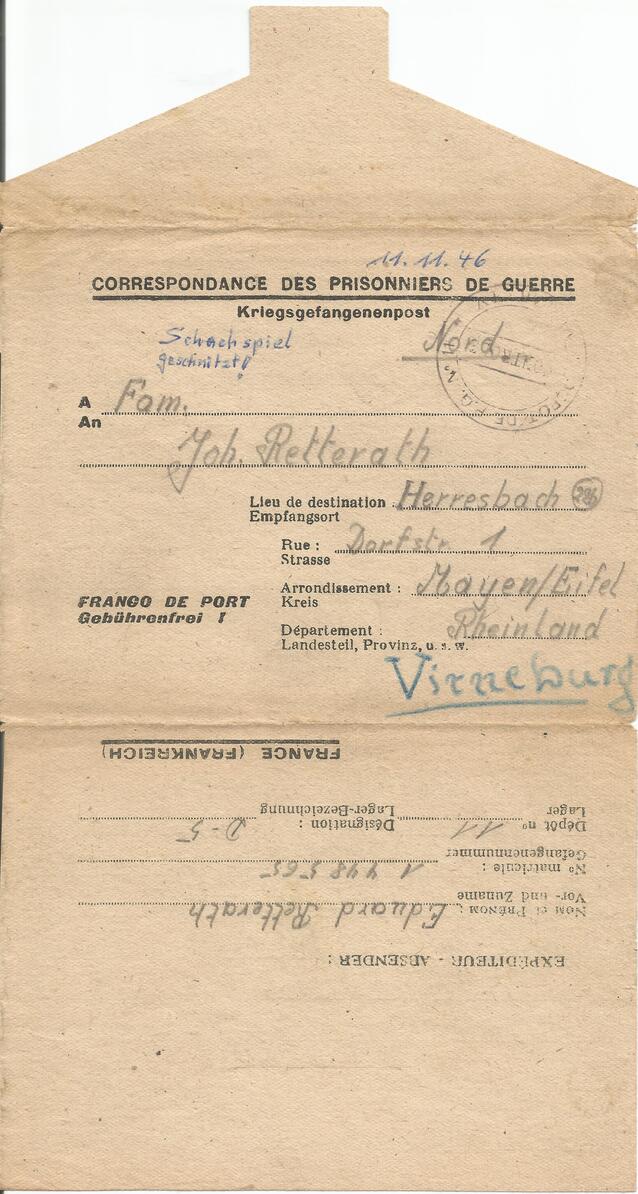 11. 11. 46
CORRESPONDANCE DES PRISONNIERS DE GUERRE
Kriegsgefangenenpost
Schachspiel
geschnitzt!
Nord
A Fam.
An
Joh. Retterath
Lieu de destination Herresbach (22b)
Empfangsort
Rue : Dorfstr. 1
Strasse
Arrondissement : Mayen/Eifel
Kreis
FRANCO DE PORT
Gebührenfrei !
Département : Rheinland
Landesteil, Provinz, u. s. w.
Virneburg
EXPÉDITEUR - ABSENDER :
NOM et PRÉNOM : Eduard Retterath
Vor- und Zuname
No matricule : 1 448 565
Gefangenennummer
Dépôt no 11 Désignation : D-5
Lager Lager-Bezeichnung
FRANCE (FRANKREICH)